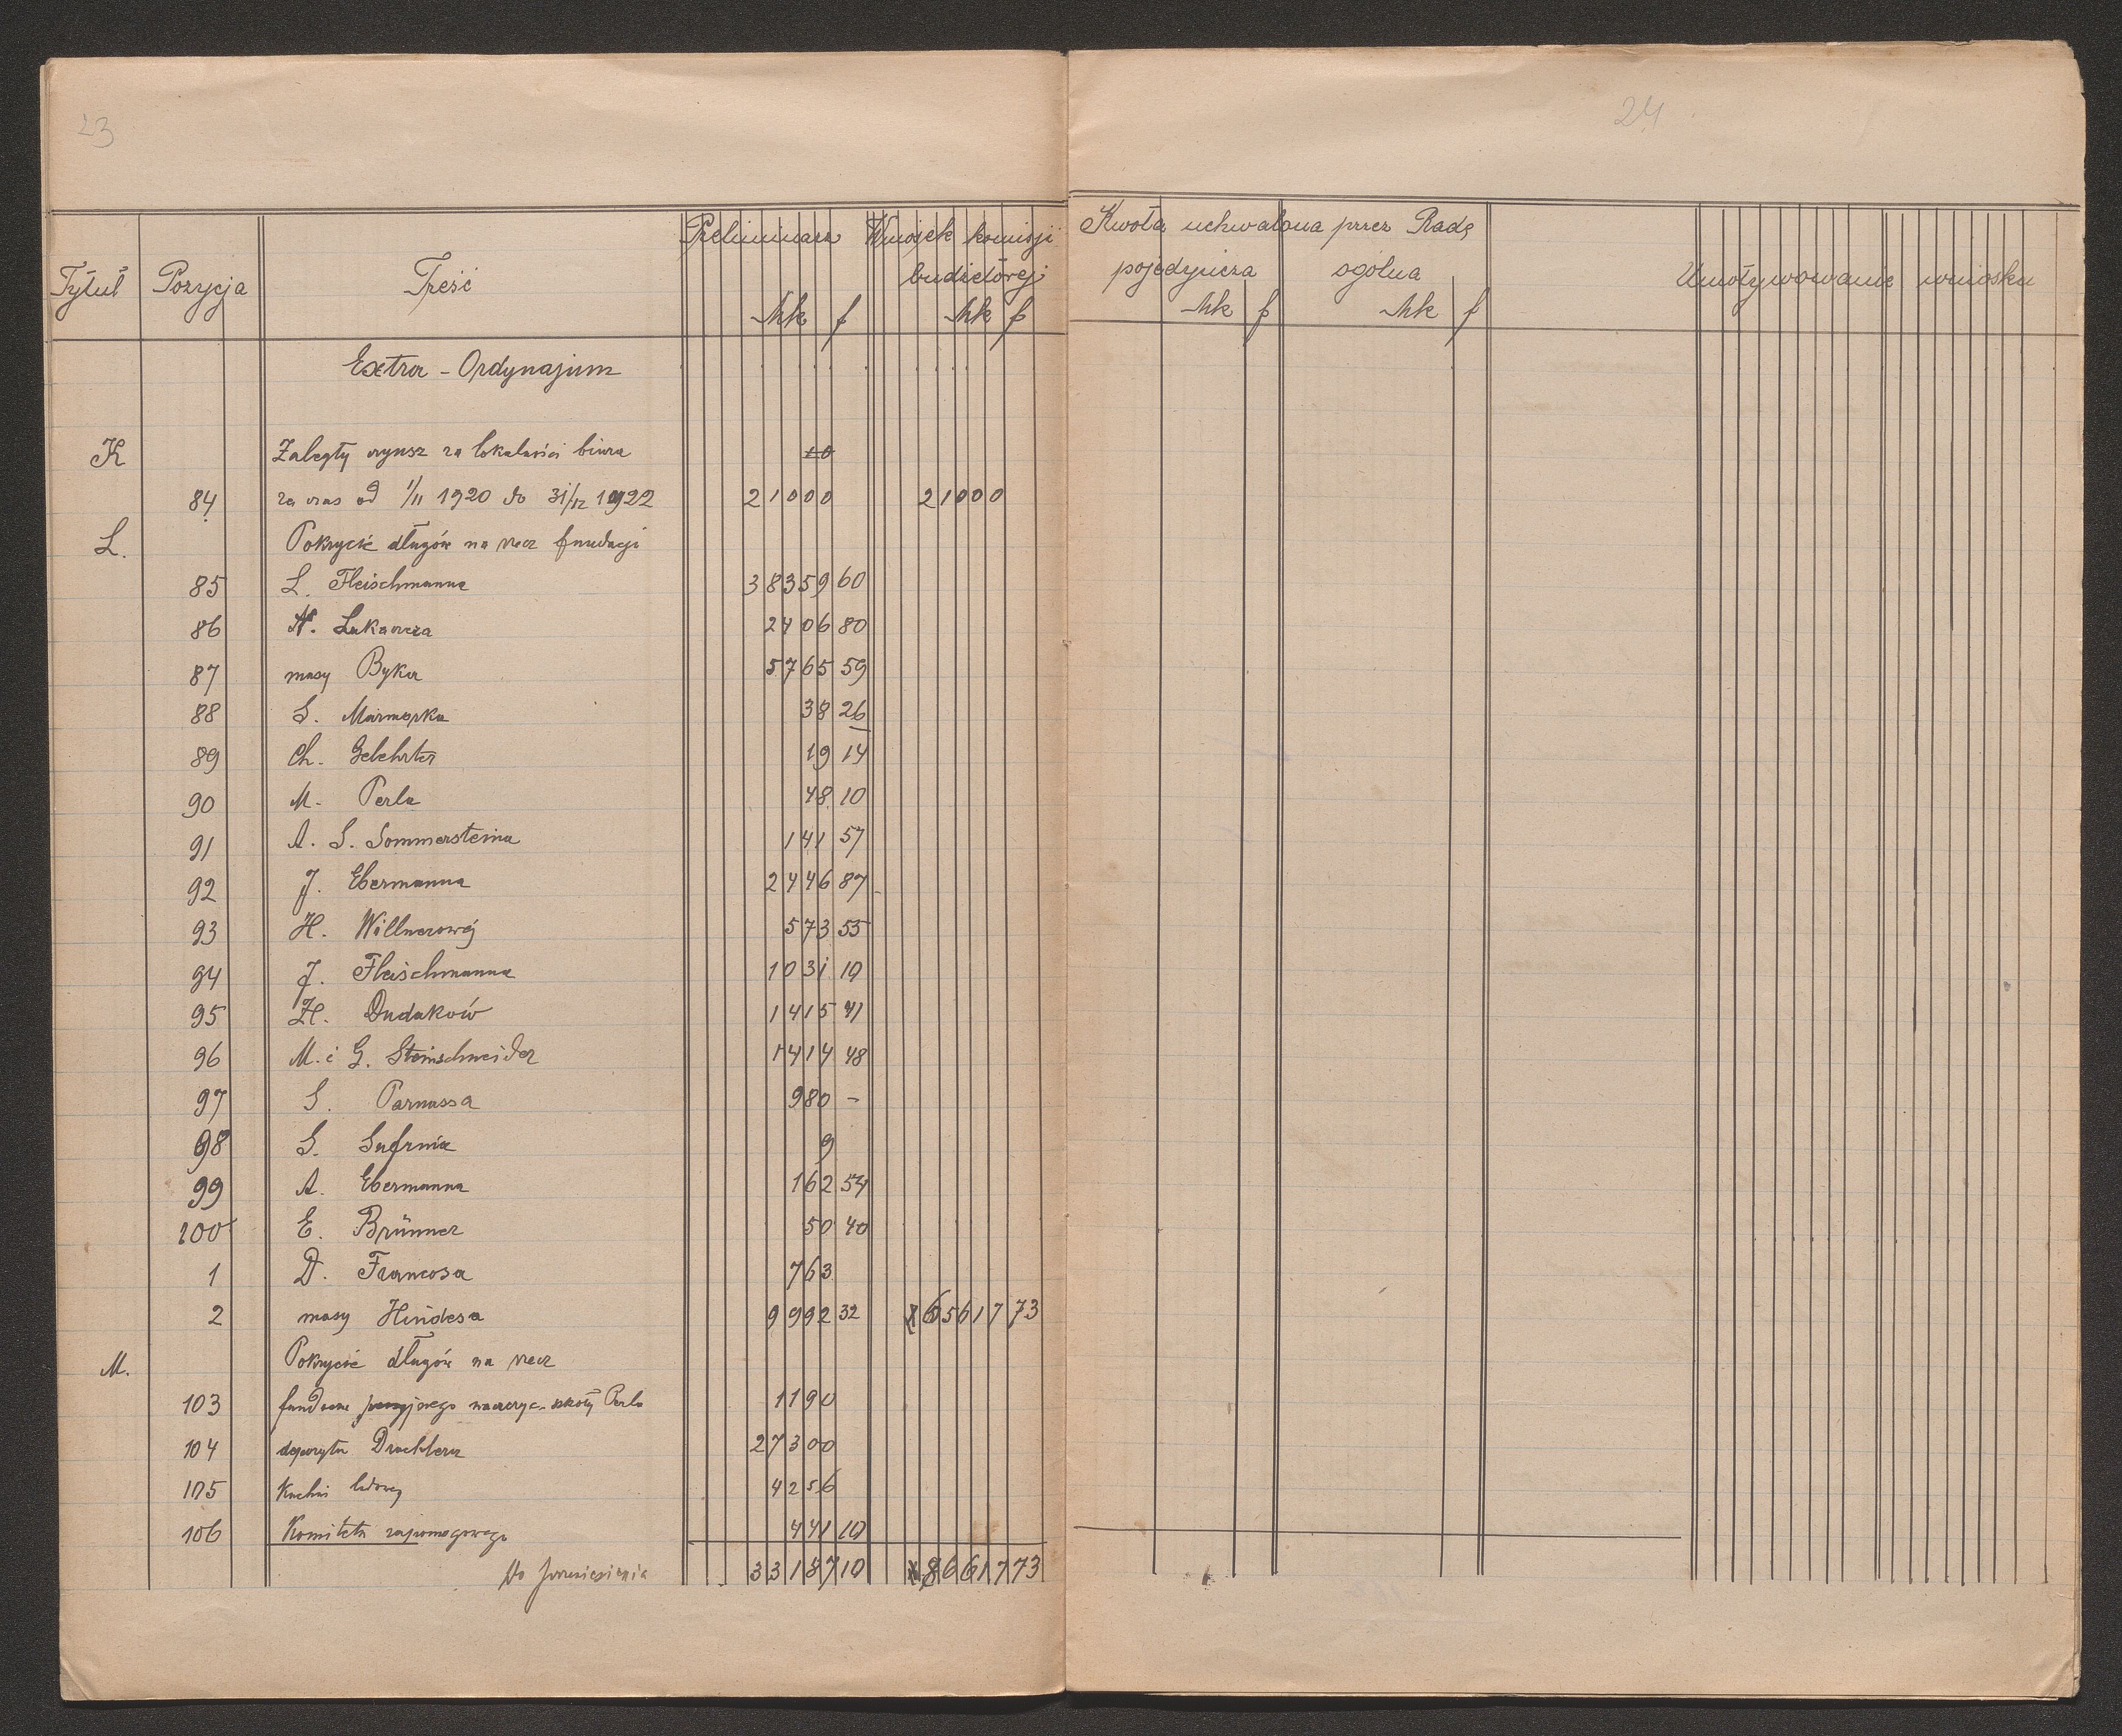 23
24
Tytuł Pozycja Treść Preliminarz Wniosek komisji budżetowej
Mk f Mk f
Kwota uchwalona przez Radę
pojedyncza ogólna
Mk f Mk f
Umotywowanie wniosku
Extra - Ordynajum
K Zaległy czynsz za lokalności biura
84 za czas od 1/II 1920 do 31/12 1922 21000 21000
L. Pokrycie długów na rzecz fundacji
85 L. Fleischmanna 38359 60
86 N. Lukacza 2406 80
87 masy Byka 5765 59
88 S. Marmorka 38 26
89 Ch. Gelehrter 19 14
90 M. Perla 48 10
91 A. S. Sommersteina 141 57
92 J. Ebermanna 2446 87
93 H. Willnerowej 573 55
94 J. Fleischmanna 1031 10
95 H. Dudaków 1415 41
96 M. i G. Steinschneider 1414 48
97 S. Parnassa 980 -
98 S. 9
99 A. Ebermanna 162 54
100 E. Brünner 50 40
1 D. Francosa 763
2 masy Hindesa 9992 32 65617 73
M. Pokrycie długów na rzecz
103 szkoły Perla 1190
104 depozytu Drachlera 27300
105 Kuchni ludowej 4256
106 Komitetu zapomogowego 441 10
Do przeniesienia 33187 10 86617 73